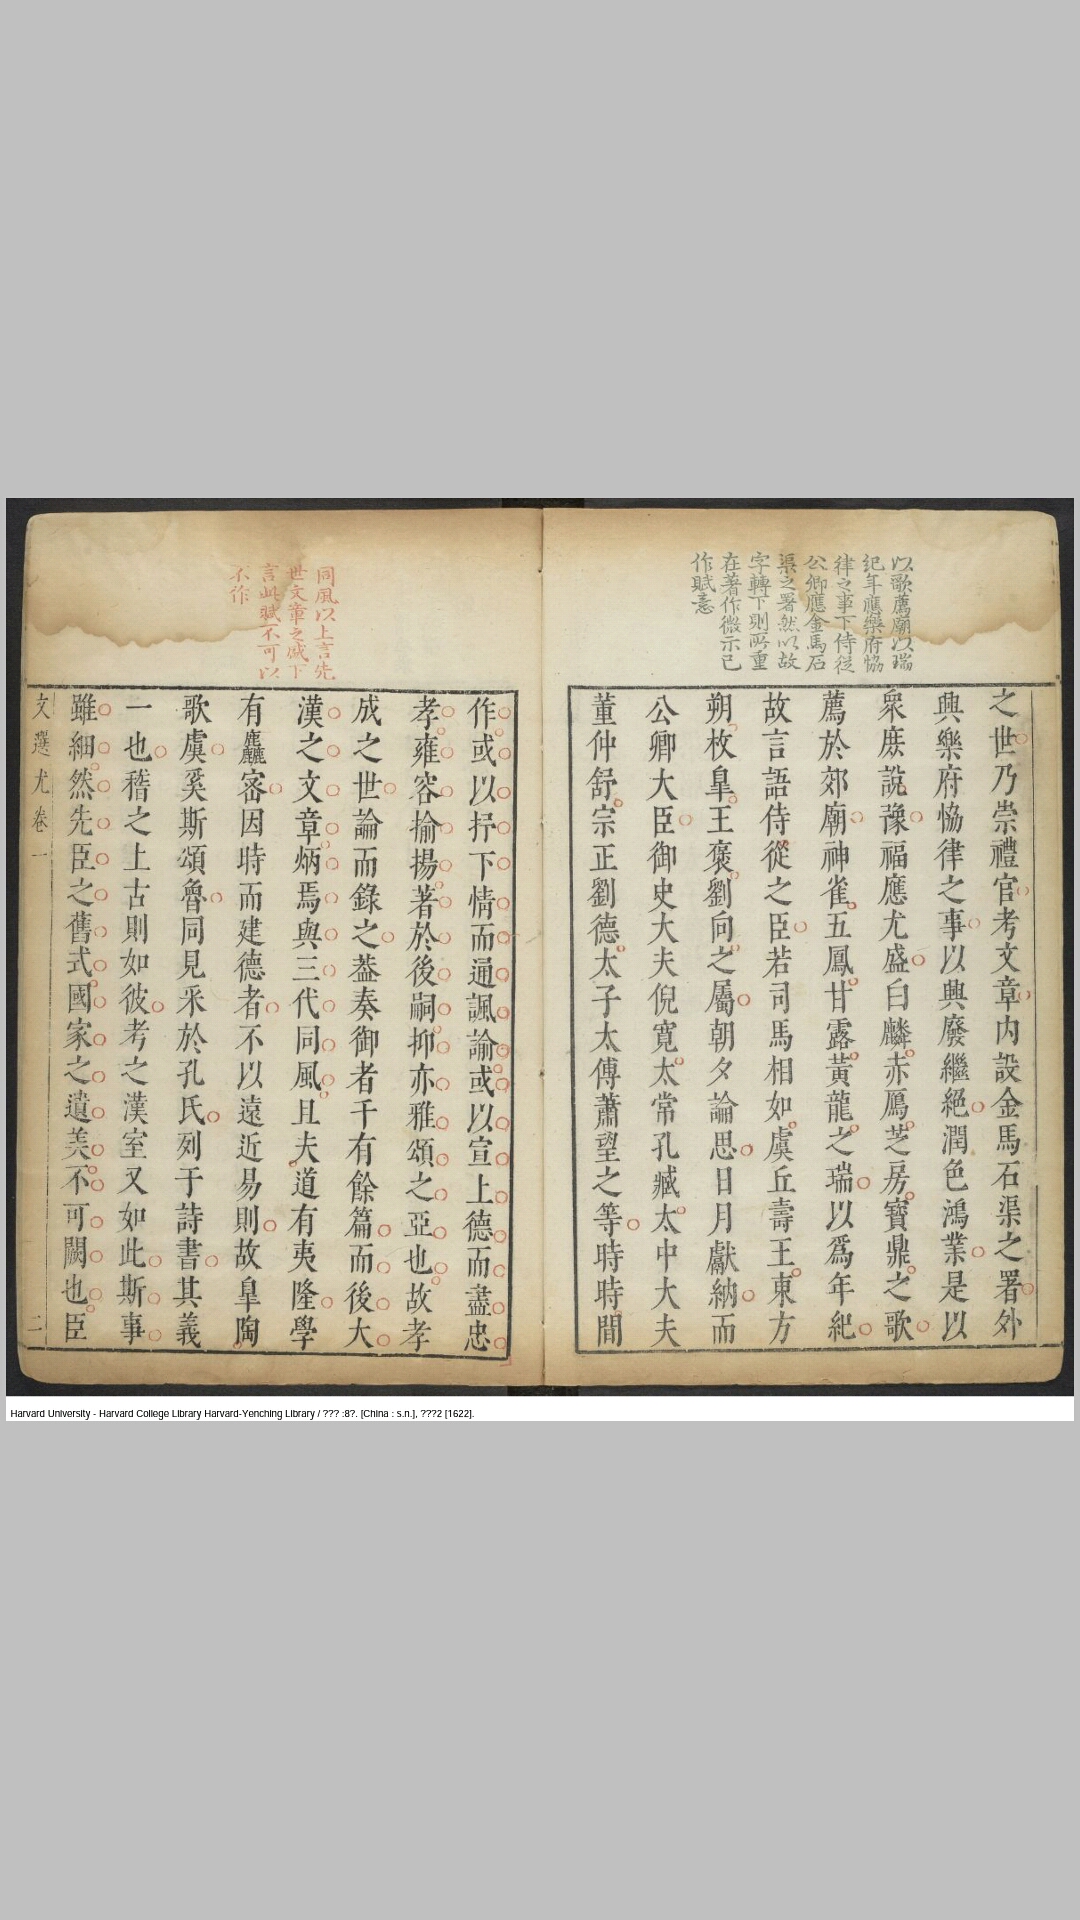 以歌薦廟以瑞
紀年應樂府協
律之事下侍從
公卿應金馬石
渠之署然以故
字轉下則所重
在著作微示己
作賦意
之世乃崇禮官考文章内設金馬石渠之署外
興樂府恊律之事以興廢繼絕潤色鴻業是以
衆庶說豫福應尤盛白麟赤鴈芝房寶鼎之歌
薦於郊廟神雀五鳳甘露黃龍之瑞以爲年紀
故言語侍從之臣若司馬相如虞丘壽王東方
朔枚臯王褒劉向之屬朝夕論思日月獻納而
公卿大臣御史大夫倪寬太常孔臧太中大夫
董仲舒宗正劉德太子太傅蕭望之等時時間
同風以上言先
世文章之盛下
言此賦不可以
不作
作或以抒下情而通諷諭或以宣上德而盡忠
孝雍容揄揚著於後嗣抑亦雅頌之亞也故孝
成之世論而錄之葢奏御者千有餘篇而後大
漢之文章炳焉與三代同風且夫道有夷隆學
有麤密因時而建德者不以遠近易則故臯陶
歌虞奚斯頌魯同見采於孔氏列于詩書其義
一也稽之上古則如彼考之漢室又如此斯事
雖細然先臣之舊式國家之遺美不可闕也臣
文選尤卷一 二
Harvard University - Harvard College Library Harvard-Yenching Library / ??? :8?. [China : s.n.], ???2 [1622].